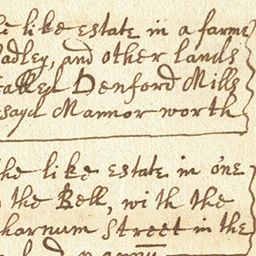 like Estate in a farme
adley, and other lands
called Denford Mills
sayd Mannor worth
he like Estate in one
the Bell, with the
harnum Street in the